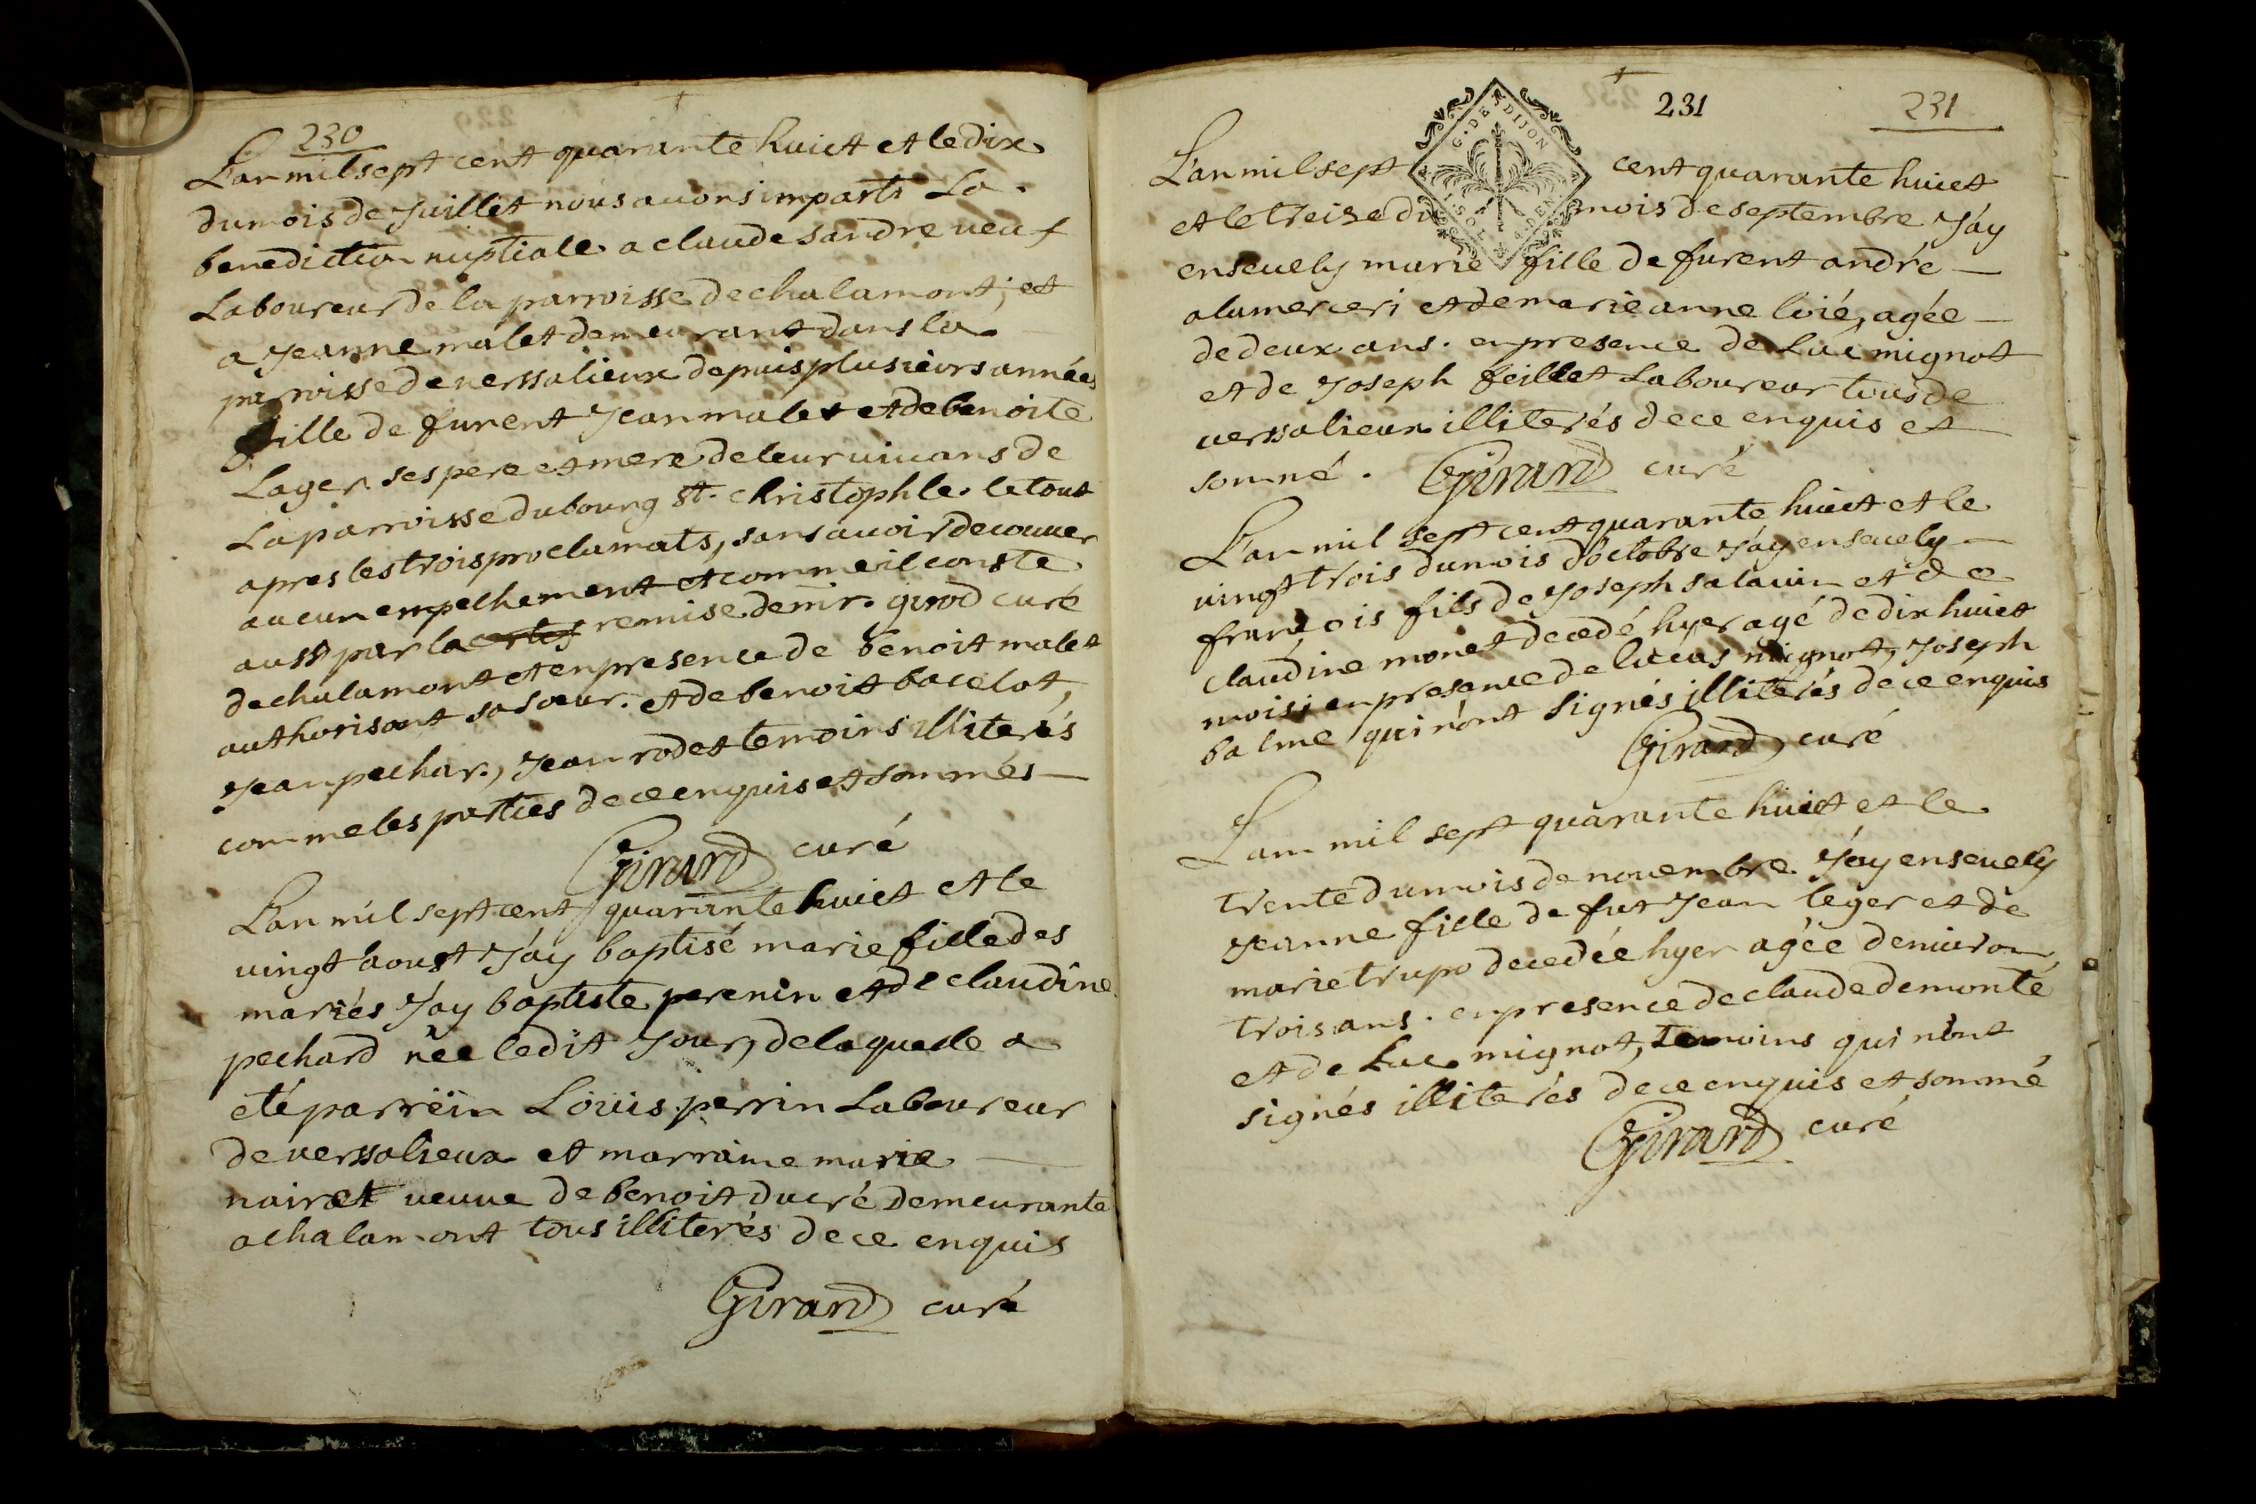 230
L'an mil sept cent quarante huict et le dix
du mois de Juillet nous auons imparti La
benediction nuptiale a claude sandre veuf
Laboureur de la parroisse de chalamont, et
a Jeanne malet demeurant dans la
parroisse de verssalieux depuis plusieurs années
fille de furent Jean malet et de benoite
Lager ses pere et mere de leur uiuans de
La parroisse du bourg st. christophle. le tout
apres les trois proclamats, sans auoir decouuer
aucun empechement et comme il conste
aussi par la remise de mr. girod curé
de chalamont et en presence de benoit malet
authorisant sa soeur. et de benoit bacelot,
Jean pechar, Jean rodet temoins illiterés
comme les parties de ce enquis et sommés
Girard curé
L'an mil sept cent quarante huict et le
uingt aoust J'ay baptisé marie fille des
mariés J'ay baptiste perenin et de claudine
pechard née ledit Jour, de laquelle a
eté parrein Loüis perrin Laboureur
de verssalieux et marraine marie
nairet veuue de benoit ducré demeurante
a chalamont tous illiterés de ce enquis
Girard curé
231
231
G. DE DIJON
L'an mil sept cent quarante huict
et le treize du mois de septembre J'ay
enseuely marie fille de furent andré
alamerceri et de marie anne loié, agée
de deux ans. en presence de Luc mignot
et de Joseph feillet Laboureur tous de
verssalieux illiterés de ce enquis et
sommé. Girard curé
L'an mil sept cent quarante huict et le
uingt trois du mois d'octobre J'ay enseuely
françois fils de Joseph salauin et de
claudine monet decedé hyer agé de dix huict
mois; en presence de lucas mignot, Joseph
balme qui n'ont signés illiterés de ce enquis
Girard, curé
L'an mil sept quarante huict et le
trente du mois de nouembre J'ay enseuely
Jeanne fille de fut Jean leger et de
marie trupo decedée hyer agée denuiron
trois ans. en presence de claude demonté
et de Luc mignot, temoins qui n'ont
signés illiterés de ce enquis et sommé
Girard curé